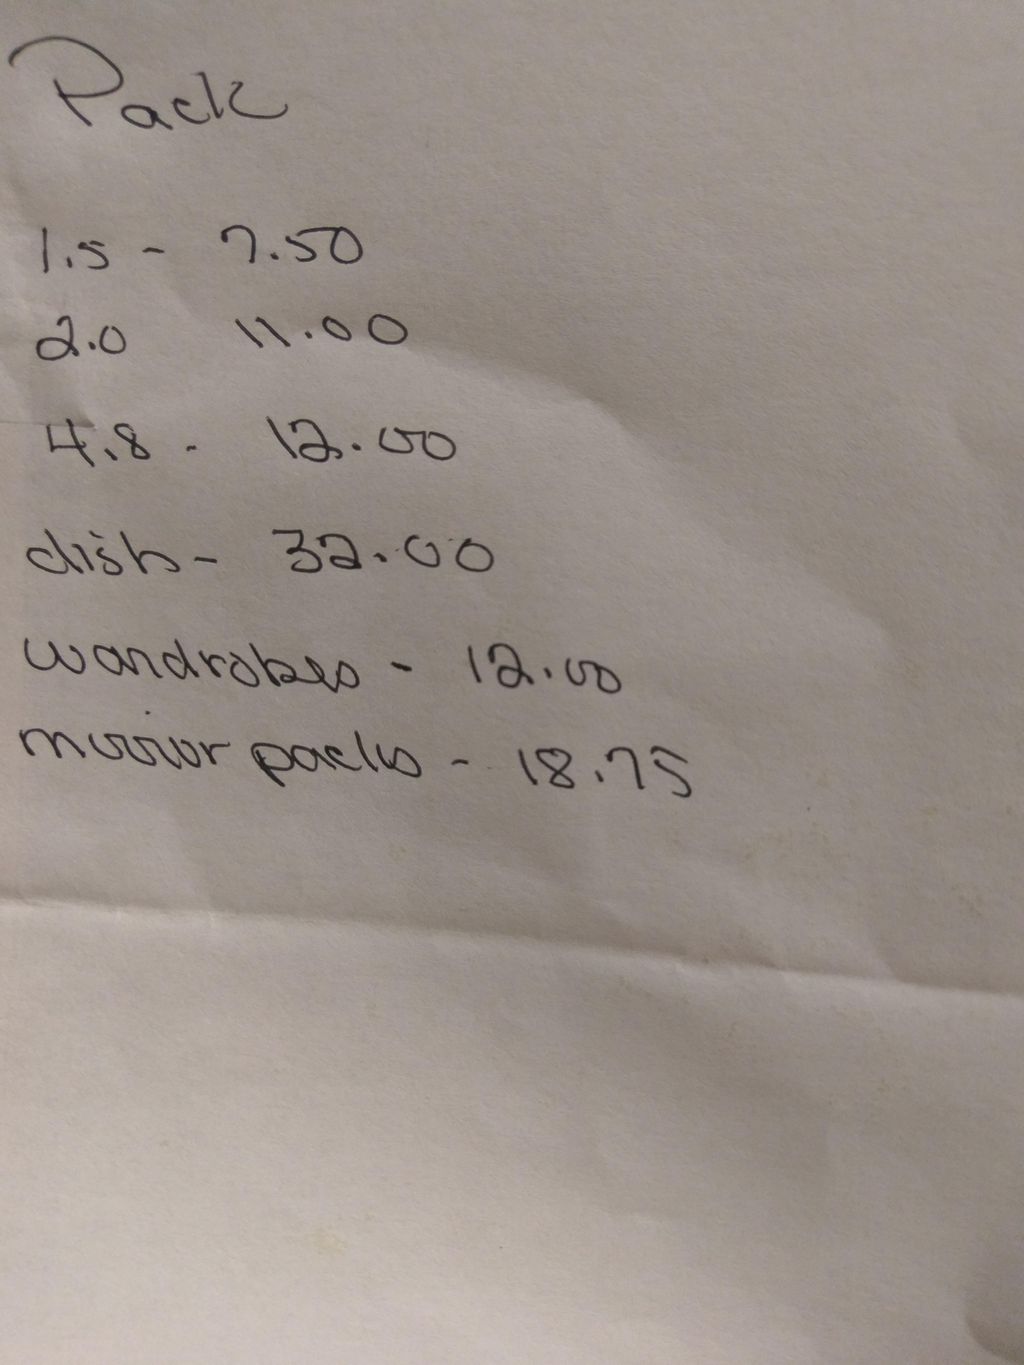 Pack
1.5 - 7.50
2.0 11.00
4.8 - 12.00
dish - 32.00
wardrobes - 12.00
mirror packs - 18.75